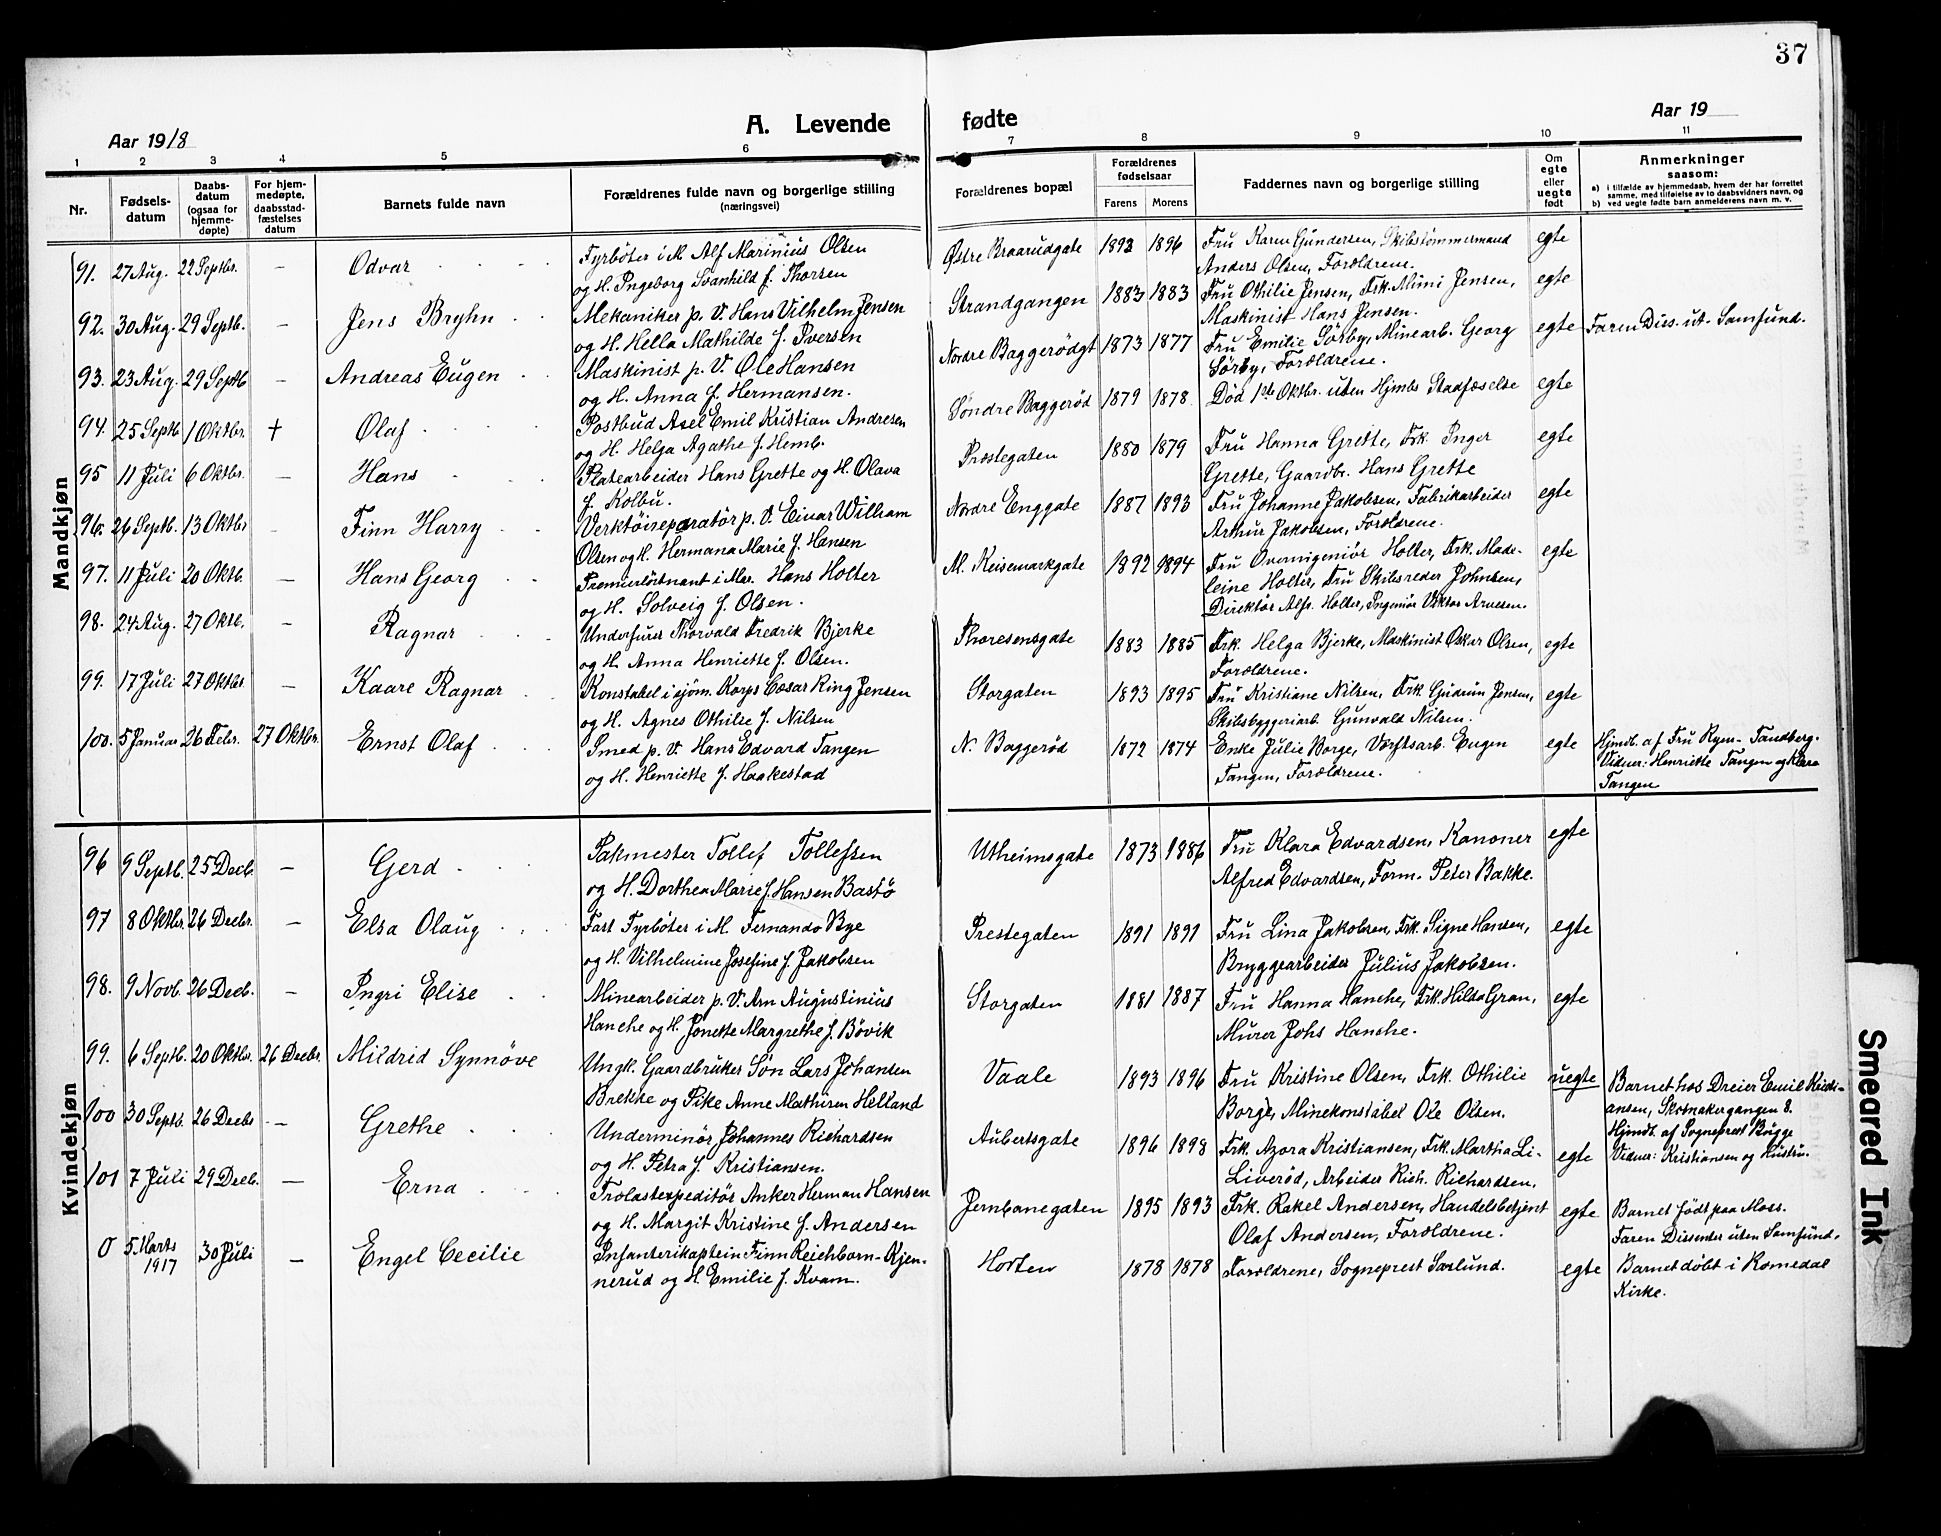 37
Aar 1918
A. Levende fødte
Aar 19
1 2 3 4 5 6 7 8 9 10 11
Nr.
Fødsels-
datum
Daabs-
datum
(ogsaa for
hjemme-
døpte)
For hjem-
medøpte,
daabsstad-
fæstelses
datum
Barnets fulde navn
Forældrenes fulde navn og borgerlige stilling
(næringsvei)
Forældrenes bopæl
Forældrenes
fødselsaar
Farens Morens
Faddernes navn og borgerlige stilling
Om
egte
eller
uegte
født
Anmerkninger
saasom:
a) i tilfælde av hjemmedaab, hvem der har forrettet
samme, med tilføielse av to daabsvidners navn, og
b) ved uegte fødte barn anmelderens navn m. v.
Mandkjøn
91. 27 Aug. 22 Septbr. — Odvar
Fyrbøter i M. Alf Marinius Olsen
og H. Ingeborg Svanhild f. Thorsen
Østre Braarudgate 1893 1896
Fru Karen Gundersen, Skibstømmermand
Anders Olsen, Forældrene.
egte
92. 30 Aug. 29 Septb. — Jens Bryhn
Mekaniker p. V. Hans Vilhelm Jensen
og H. Hella Mathilde f. Iversen
Strandgangen 1883 1883
Fru Othilie Jensen, Frk. Mimi Jensen,
Maskinist Hans Jensen.
egte
93. 23 Aug. 29 Septb — Andreas Eugen
Maskinist p. V. Ole Hansen
og H. Anna f. Hermansen.
Nordre Baggerödgt 1873 1877
Fru Emilie Sørby, Minearb. Georg
Sørby, Forældrene.
egte Faren Diss. ut. Samfund.
94. 25 Septb. 1 Oktbr. + Olaf
Postbud Axel Emil Kristian Andresen
og H. Helga Agathe f. Hemb.
Søndre Baggerød 1879 1878.
Död 1ste Oktbr. uten Hjmbs Stadfæselse
egte
95 11 Juli 6 Oktbr. — Hans
Platearbeider Hans Grette og H. Olava
f. Kolbu.
Prestegaten 1880 1879
Fru Hanna Grette, Frk. Inger
Grette, Gaardbr. Hans Grette
egte
96. 26 Septb. 13 Oktbr — Finn Harry
Verktöireparatör p. V. Einar William
Olsen og H. Hermana Marie f. Hansen
Nordre Enggate 1887 1893
Fru Johanne Jakobsen, Fabrikarbeider
Arthur Jakobsen, Forældrene.
egte
97. 11 Juli 20 Oktb. — Hans Georg
Premierlöitnant i Mar. Hans Holter
og H. Solveig f. Olsen.
M. Reisemarkgate 1892 1894
Fru Overingeniör Holter, Frk. Made-
leine Holter, Fru Skibsreder Johnsen,
Direktör Alfr. Holter, Ingeniör Viktor Arnesen.
egte
98. 24 Aug. 27 Oktb. — Ragnar
Underfurer Thorvald Fredrik Bjerke
og H. Anna Henriette f. Olsen.
Thoresensgate 1883 1885
Frk. Helga Bjerke, Maskinist Oskar Olsen,
Forældrene.
egte
99. 17 Juli 27 Oktbr. — Kaare Ragnar
Konstabel i sjöm. Korps Cæsar Ring Jensen
og H. Agnes Othilie f. Nilsen
Storgaten 1893 1895
Fru Kristiane Nilsen, Frk. Gudrun Jensen,
Skibsbyggeriarb. Gunvald Nilsen.
egte
100. 5 Januar 26 Febr. 27 Oktbr. Ernst Olaf
Smed p. V. Hans Edvard Tangen
og H. Henriette f. Haakestad
N. Baggeröd 1872 1874
Enke Julie Borge, Værftsarb. Eugen
Tangen, Forældrene.
egte
Hjmdb. af Fru Ryen-Tandberg.
Vidner: Henriette Tangen og Klara
Tangen
Kvindekjøn
96 9 Septb. 25 Decb. — Gerd
Pakmester Tollef Tollefsen
og H. Dorthea Marie f. Hansen Bastö
Utheimsgate 1873 1886
Fru Klara Edvardsen, Kanoner
Alfred Edvardsen, Form. Peter Bakke.
egte
97 8 Oktbr. 26 Decbr. — Elsa Olaug
Fast Fyrböter i M. Fernando Bye
og H. Vilhelmine Josefine f. Jakobsen
Prestegaten 1891 1891
Fru Lina Jakobsen, Frk. Signe Hansen,
Bryggearbeider Julius Jakobsen.
egte
98. 9 Novb. 26 Decb. — Ingri Elise
Minearbeider p. V. Arn Augustinius
Hanche og H. Jonette Margrethe f. Bövik
Storgaten 1881 1887
Fru Hanna Hanche, Frk. Hilda Gran,
Murer Johs Hanche.
egte
99. 6 Septb. 20 Oktbr. 26 Decbr. Mildrid Synnöve
Ungk. Gaardbruker Sön Lars Johansen
Brekke og Pike Anne Mathisen Helland
Vaale 1893 1896
Fru Kristine Olsen, Frk. Othilie
Borge, Minekonstabel Ole Olsen.
uegte
Barnet hos Dreier Emil Kristi-
ansen, Skomakergangen 8.
Hjmdb. af Sogneprest Bugge
Vidner: Kristiansen og Hustru.
100 30 Septb. 26 Decbr — Grethe
Underminör Johannes Richardsen
og H. Petra f. Kristiansen.
Aubertsgate 1896 1898
Frk. Azora Kristiansen, Frk. Martha Li-
Liveröd, Arbeider Rich. Richardsen.
egte
101 7 Juli 29 Decb. — Erna
Trelastexpeditör Anker Herman Hansen
og H. Margit Kristine f. Andersen
Jernbanegaten 1895 1893
Frk. Rakel Andersen, Handelsbetjent
Olaf Andersen, Forældrene.
egte
Barnet födt paa Moss.
Faren Dissenter uten Samfund.
0 5 Marts
1917 30 Juli — Engel Cecilie
Infanterikaptein Finn Reichborn-Kjen-
nerud og H. Emilie f. Kvam.
Horten 1878 1878
Forældrene, Sogneprest Sørlund.
egte
Barnet döbt i Romedal
Kirke.
Smeared Ink